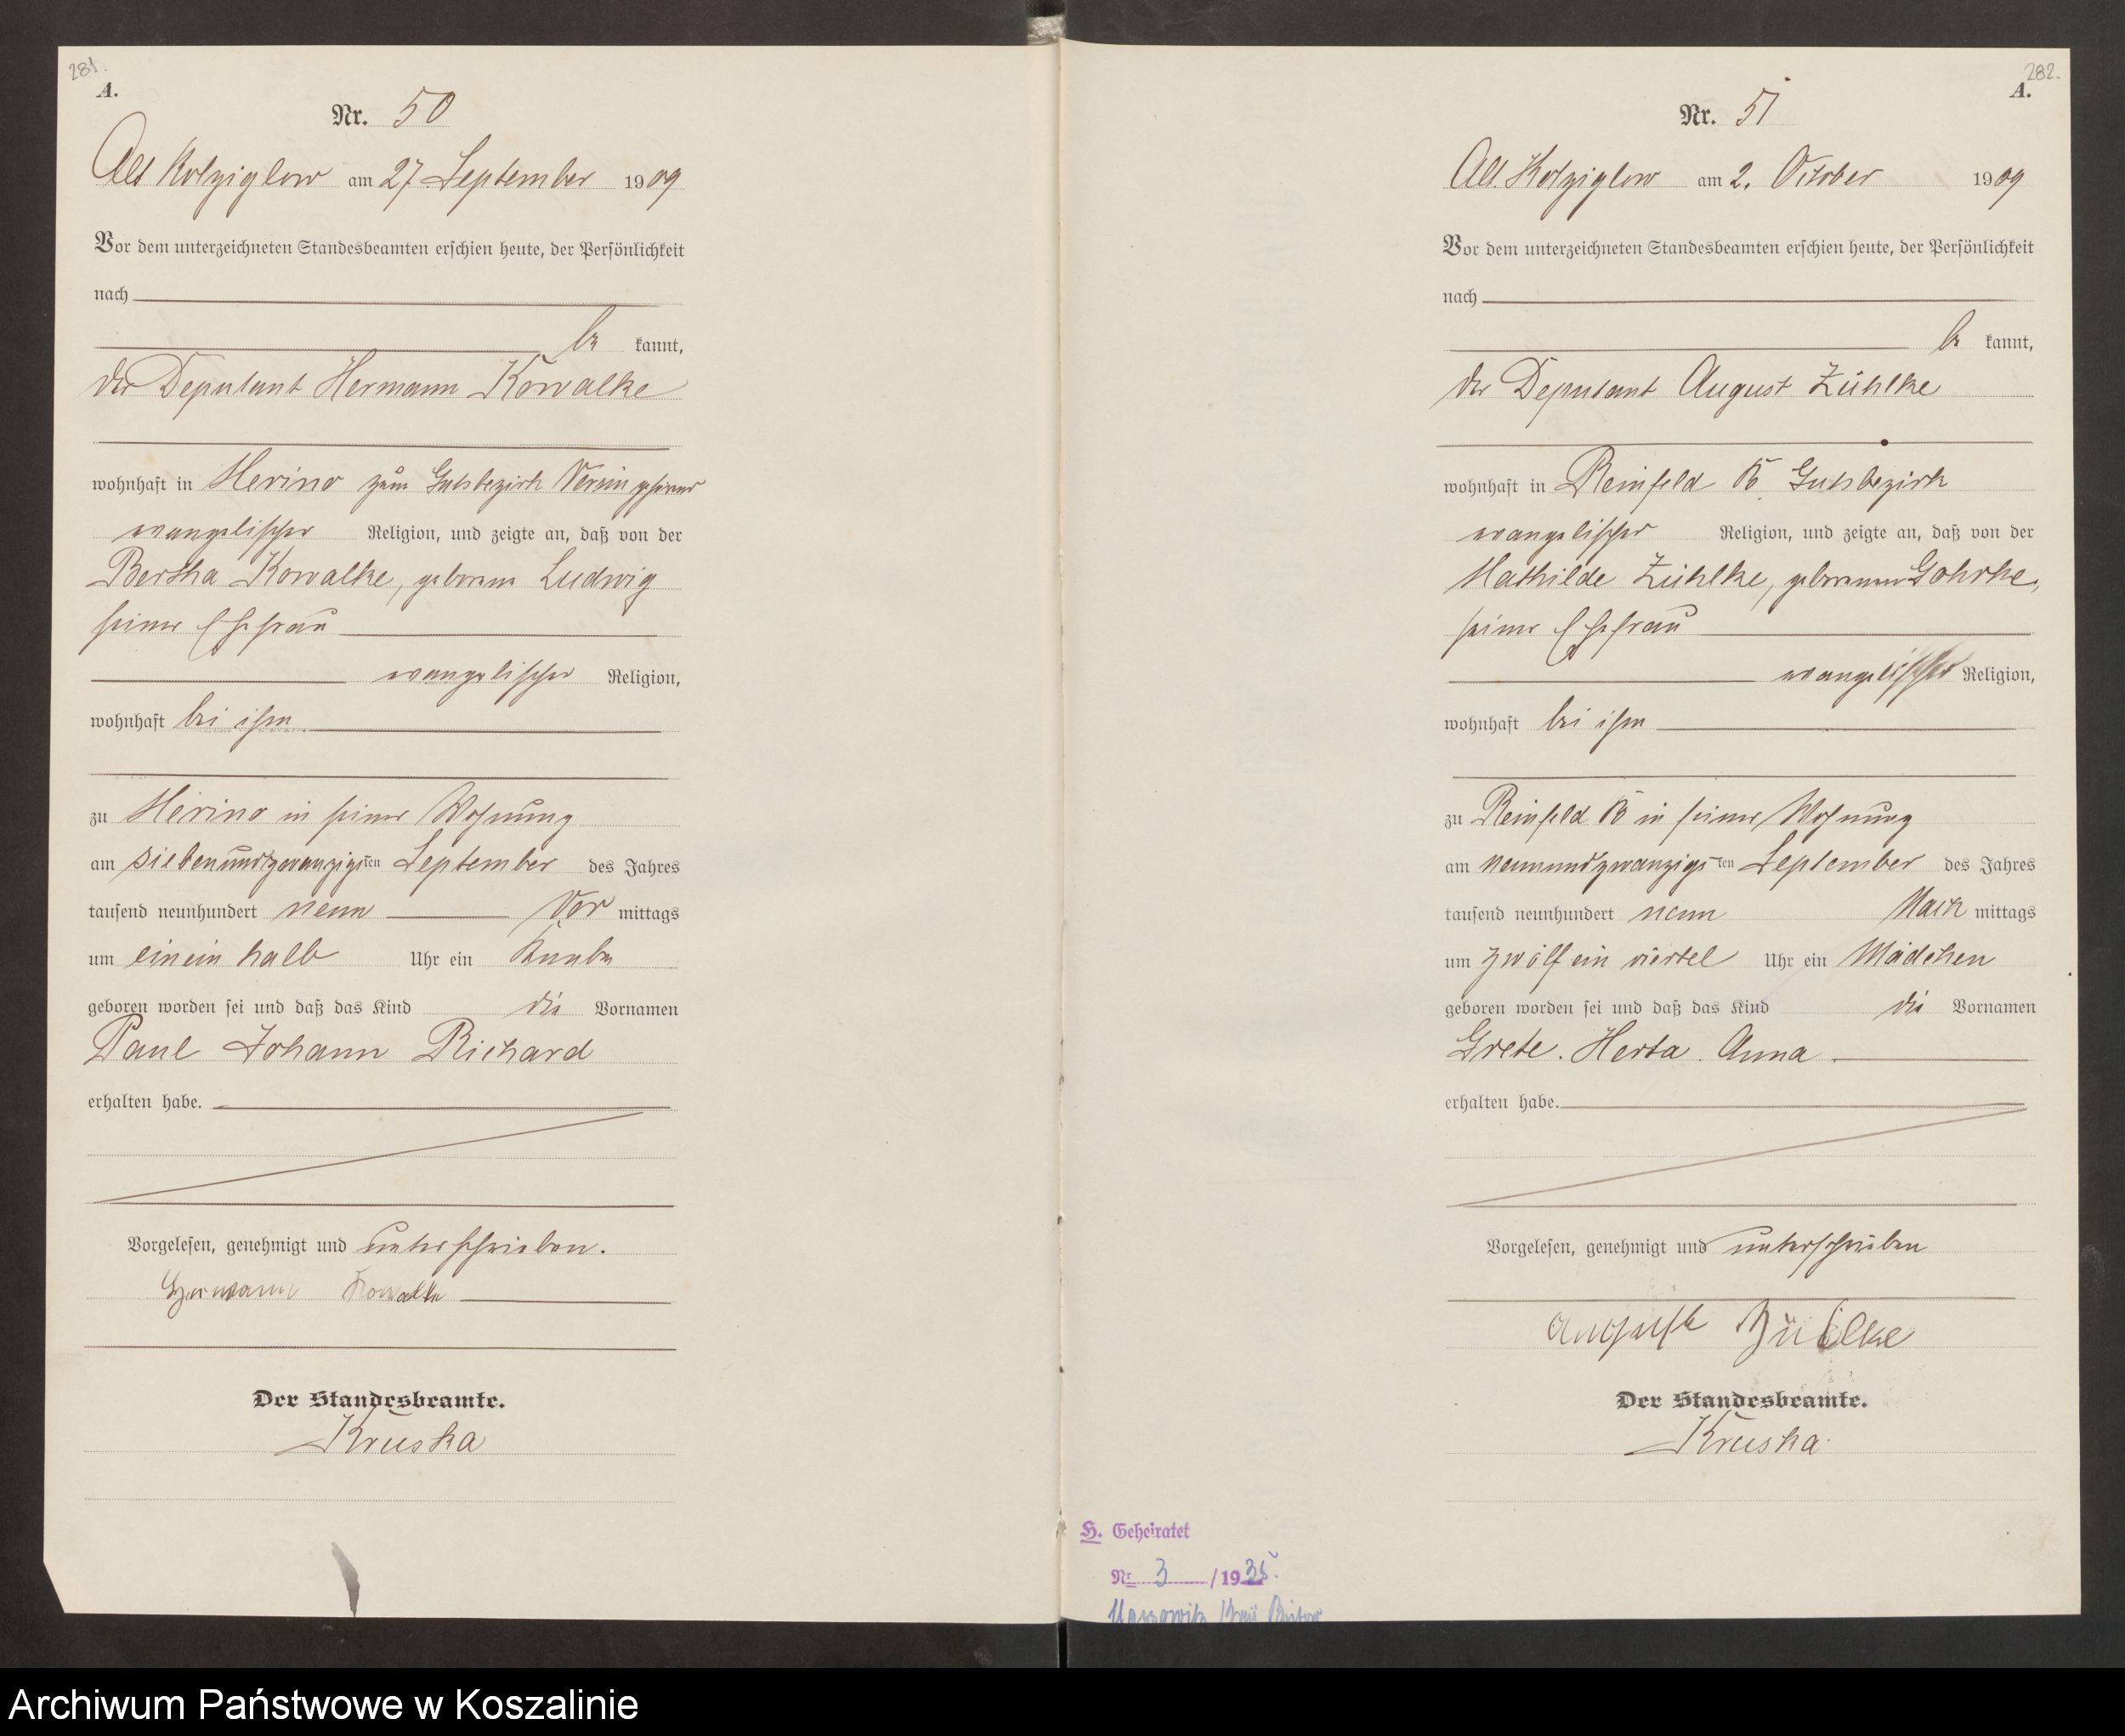 281.
A.
Nr. 50
Alt Kolziglow am 27 September 1909
Vor dem unterzeichneten Standesbeamten erschien heute, der Persönlichkeit
nach
be kannt,
der Deputant Hermann Kowalke
wohnhaft in zum Gutsbezirk
evangelischer Religion, und zeigte an, daß von der
Bertha Kowalke, geborene Ludwig
seiner Ehefrau
evangelischer Religion,
wohnhaft bei ihm
zu in seiner Wohnung
am siebenundzwanzigsten September des Jahres
tausend neunhundert neun Vor mittags
um einein halb Uhr ein Knabe
geboren worden sei und daß das Kind die Vornamen
Paul Johann Richard
erhalten habe.
Vorgelesen, genehmigt und unterschrieben.
Hermann Kowalke
Der Standesbeamte.
Kruska
282.
A.
Nr. 51
Alt. Kolziglow am 2. October 1909
Vor dem unterzeichneten Standesbeamten erschien heute, der Persönlichkeit
nach
be kannt,
der Deputant August Zühlke
wohnhaft in Reinfeld B Gutsbezirk
evangelischer Religion, und zeigte an, daß von der
Mathilde Zühlke, geborenen Gohrke,
seiner Ehefrau
evangelischer Religion,
wohnhaft bei ihm
zu Reinfeld B in seiner Wohnung
am neunundzwanzigsten September des Jahres
tausend neunhundert neun Nach mittags
um zwölf ein viertel Uhr ein Mädchen
geboren worden sei und daß das Kind die Vornamen
Grete. Herta. Anna.
erhalten habe.
Vorgelesen, genehmigt und unterschrieben
August Zühlke
Der Standesbeamte.
Kruska.
H. Geheiratet
Nr. 3 /1935.
Archiwum Państwowe w Koszalinie